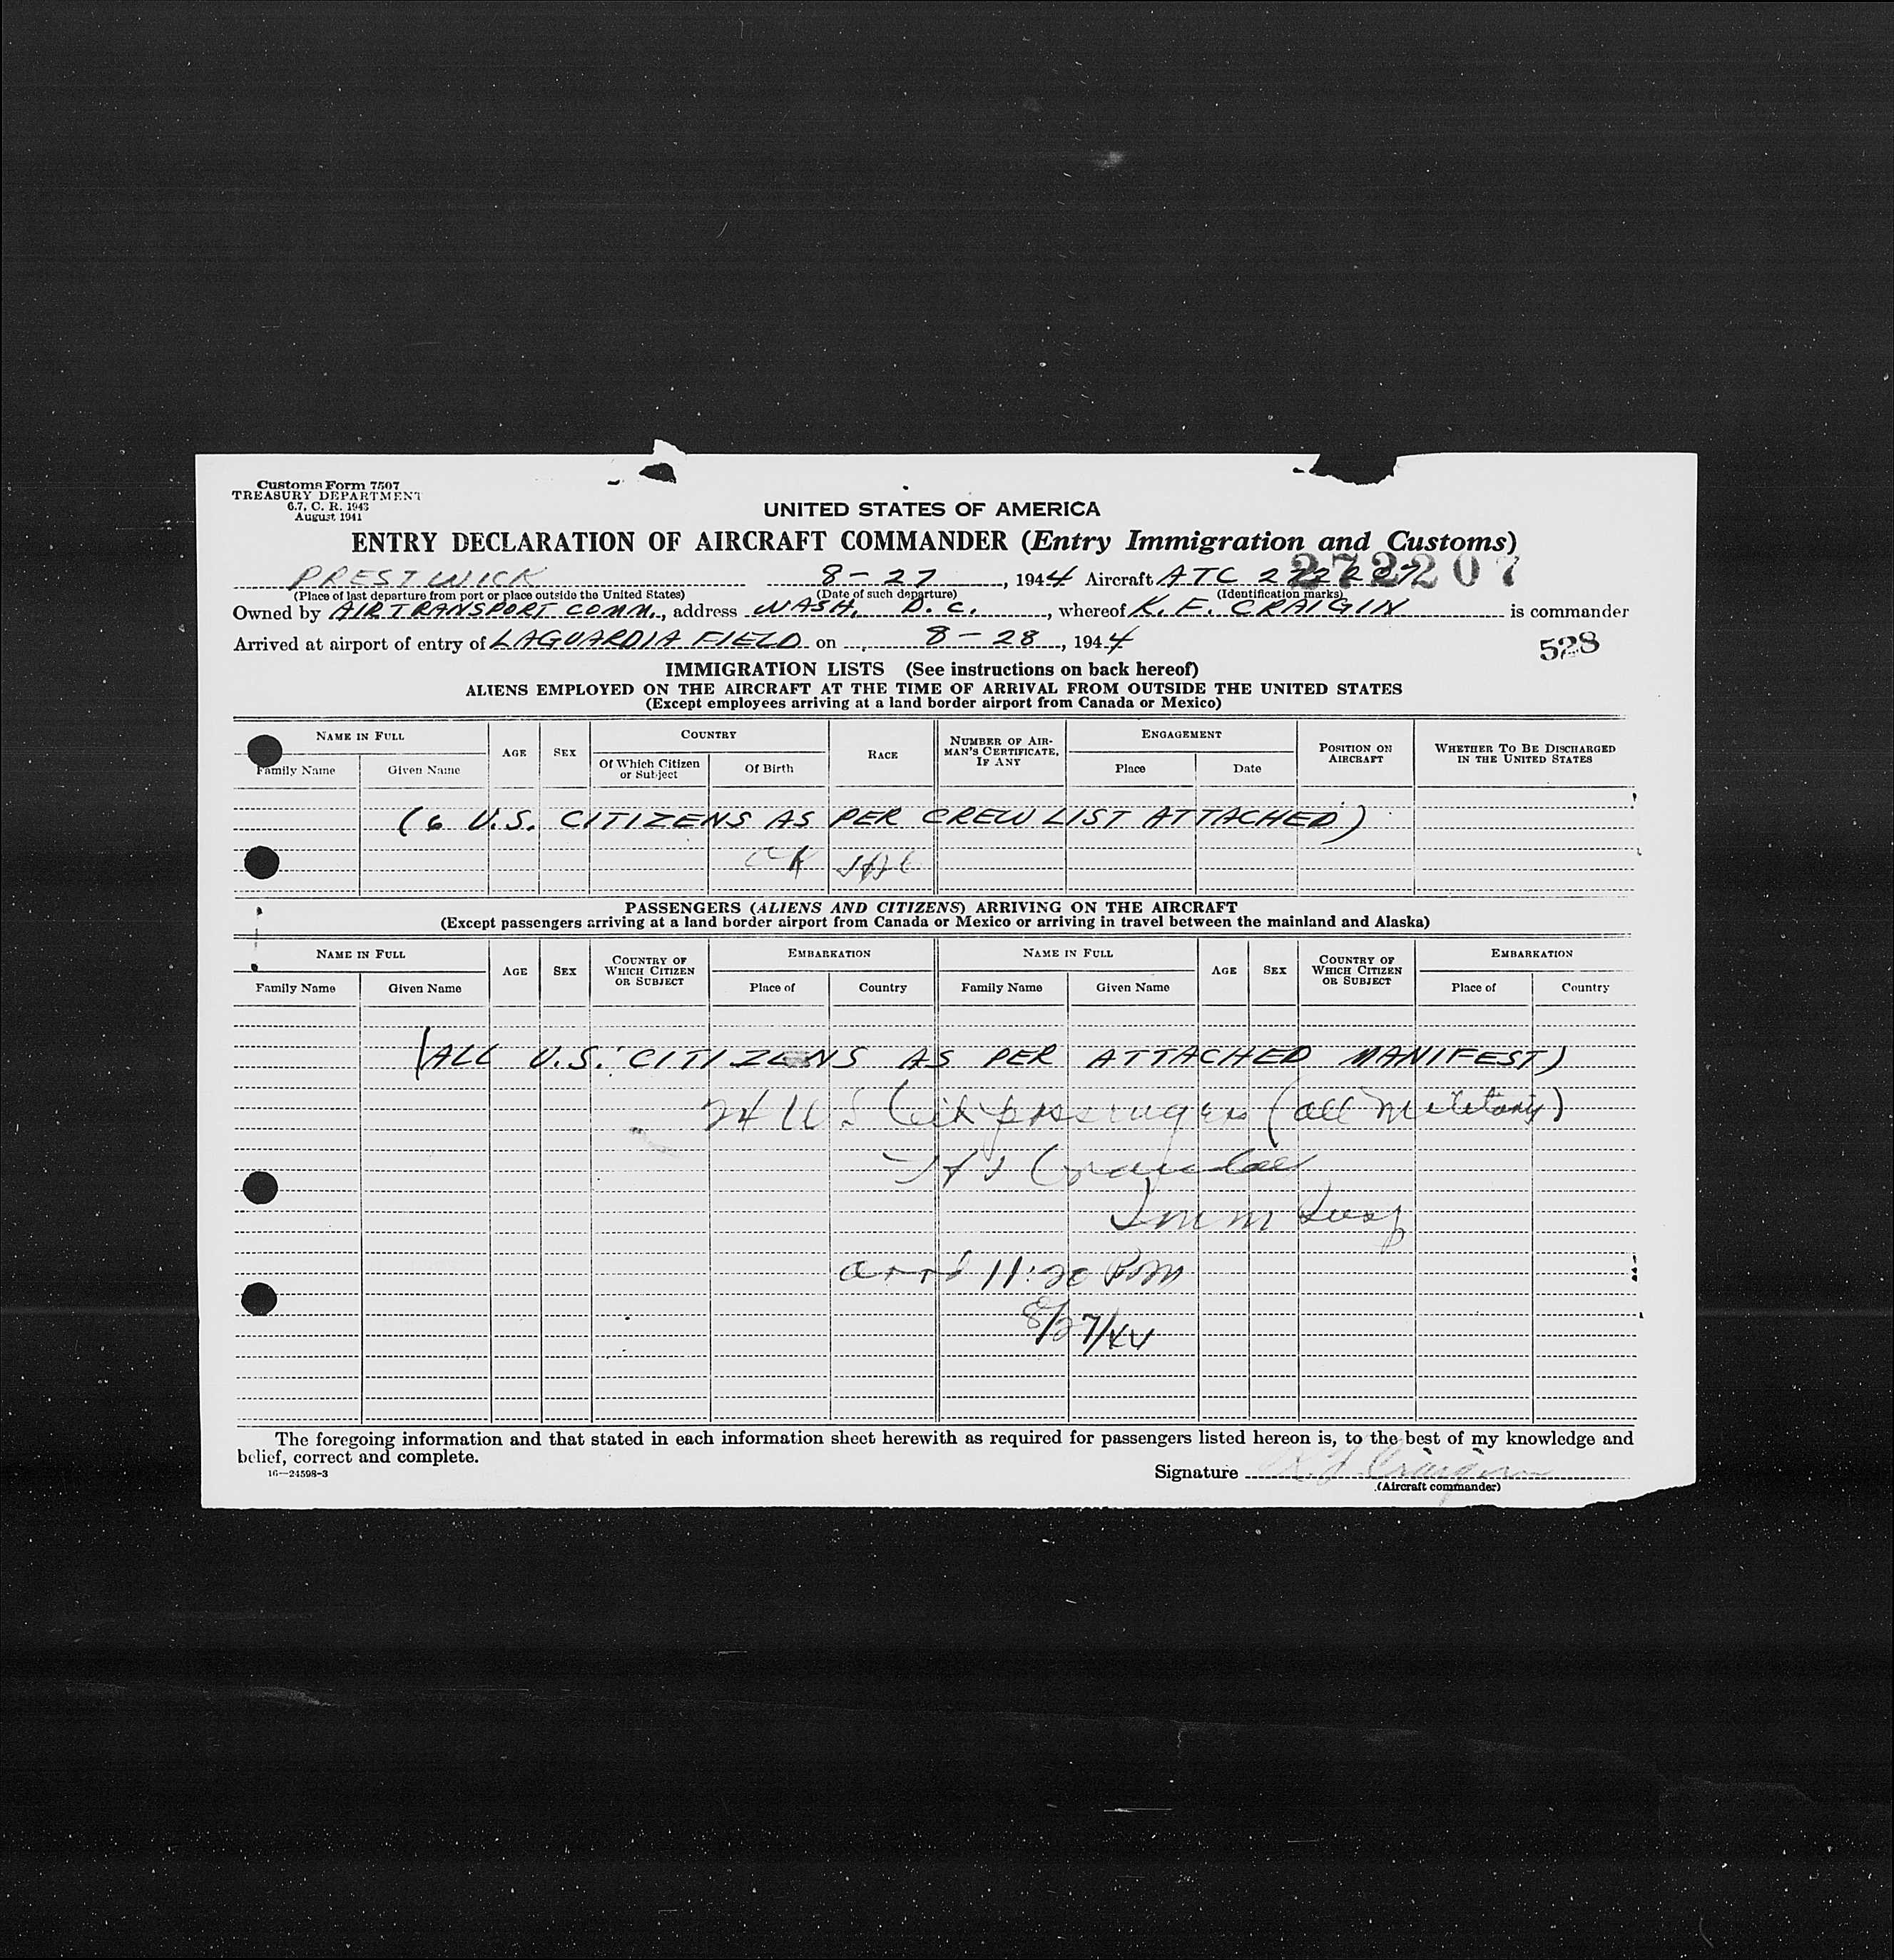 Customs Form 7507
TREASURY DEPARTMENT
6.7, C. R. 1943
August 1941
UNITED STATES OF AMERICA
ENTRY DECLARATION OF AIRCRAFT COMMANDER (Entry Immigration and Customs)
272207
PRESTWICK 8-27, 1944 Aircraft ATC
(Place of last departure from port or place outside the United States) (Date of such departure) (Identification marks)
Owned by AIR TRANSPORT COMM., address WASH. D.C., whereof K. F. CRAIGIN is commander
Arrived at airport of entry of LAGUARDIA FIELD on 8-28, 1944
528
IMMIGRATION LISTS (See instructions on back hereof)
ALIENS EMPLOYED ON THE AIRCRAFT AT THE TIME OF ARRIVAL FROM OUTSIDE THE UNITED STATES
(Except employees arriving at a land border airport from Canada or Mexico)
NAME IN FULL AGE SEX COUNTRY RACE NUMBER OF AIRMAN'S CERTIFICATE, IF ANY ENGAGEMENT POSITION ON AIRCRAFT WHETHER TO BE DISCHARGED IN THE UNITED STATES
Family Name Given Name Of Which Citizen or Subject Of Birth Place Date
(6 U.S. CITIZENS AS PER CREW LIST ATTACHED)
OK
PASSENGERS (ALIENS AND CITIZENS) ARRIVING ON THE AIRCRAFT
(Except passengers arriving at a land border airport from Canada or Mexico or arriving in travel between the mainland and Alaska)
NAME IN FULL AGE SEX COUNTRY OF WHICH CITIZEN OR SUBJECT EMBARKATION NAME IN FULL AGE SEX COUNTRY OF WHICH CITIZEN OR SUBJECT EMBARKATION
Family Name Given Name Place of Country Family Name Given Name Place of Country
(ALL U.S. CITIZENS AS PER ATTACHED MANIFEST)
24 US Cit passengers (all Military)
Imm Insp
arrd 11:20 P.M
8/27/44
The foregoing information and that stated in each information sheet herewith as required for passengers listed hereon is, to the best of my knowledge and
belief, correct and complete.
16-24598-3
Signature K. F. Craigin
(Aircraft commander)